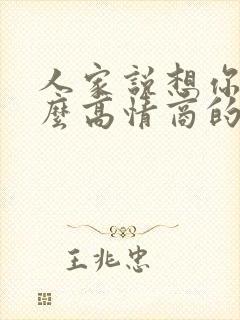 人家說想你
麼高情商的
王兆忠